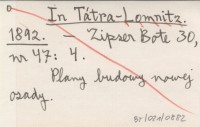 In Tátra-Lomnitz.
1892. – Zipser Bote 30,
nr 47: 4.
Plany budowy nowej
osady.
BT/081/0882